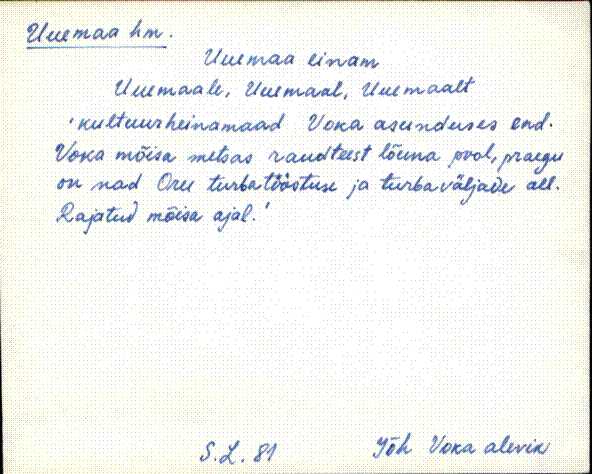 Uuemaa hm.
Uuemaa einam
Uuemaale, Uuemaal, Uuemaalt
'kultuurheinamaad Voka asunduses end.
Voka mõisa metsas raudteest lõuna pool, praegu
on nad Oru turbatööstuse ja turbaväljade all.
Rajatud mõisa ajal.'
S.L. 81 Jõh Voka alevik